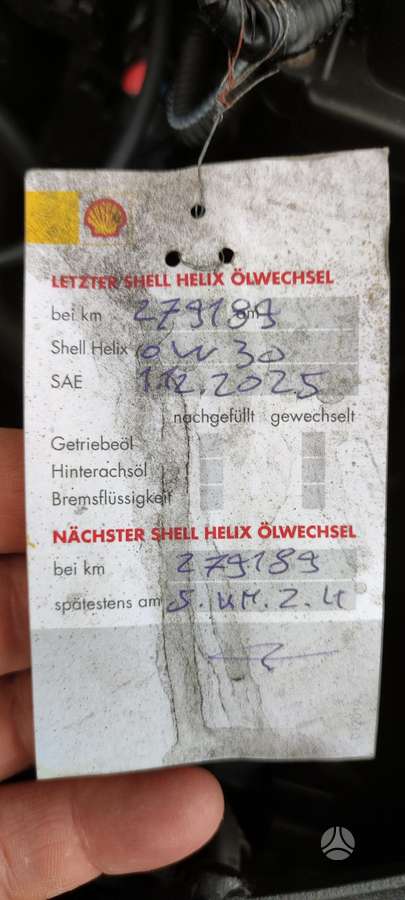 LETZTER SHELL HELIX ÖLWECHSEL
bei km 279189 am
Shell Helix 0W30
SAE 1.12.2025
nachgefüllt gewechselt
Getriebeöl
Hinterachsöl
Bremsflüssigkeit
NÄCHSTER SHELL HELIX ÖLWECHSEL
bei km 279189
spätestens am